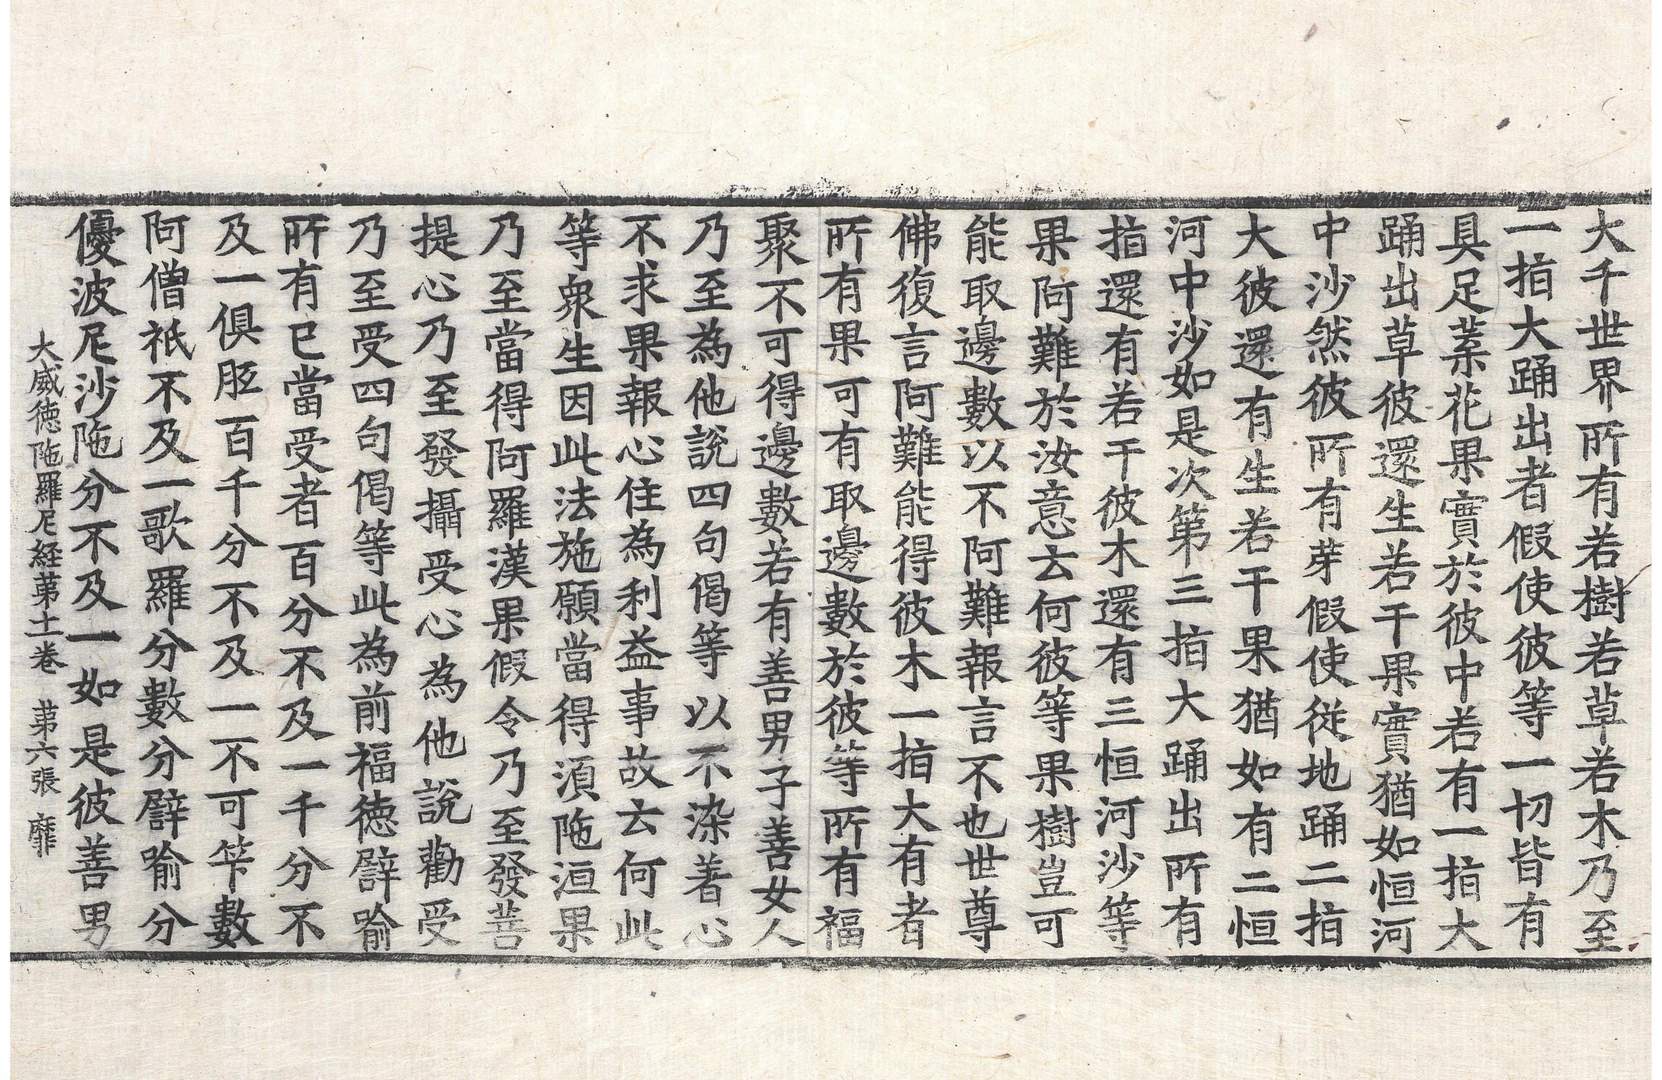 大千世界所有若樹若草若木乃至
一指大踊出者假使彼等一切皆有
具足葉花果實於彼中若有一指大
踊出草彼還生若干果實猶如恒河
中沙然彼所有芽假使從地踊二指
大彼還有生若干果猶如有二恒
河中沙如是次第三指大踊出所有
指還有若干彼木還有三恒河沙等
果阿難於汝意云何彼等果樹豈可
能取邊數以不阿難報言不也世尊
佛復言阿難能得彼木一指大有者
所有果可有取邊數於彼等所有福
聚不可得邊數若有善男子善女人
乃至為他說四句偈等以不染著心
不求果報心住為利益事故云何此
等衆生因此法施願當得湏陁洹果
乃至當得阿羅漢果假令乃至發菩
提心乃至發攝受心為他說勸受
乃至受四句偈等此為前福德譬喻
所有已當受者百分不及一千分不
及一俱胝百千分不及一不可筭數
阿僧祇不及一歌羅分數分譬喻分
優波尼沙陁分不及一如是彼善男
大威德陁羅尼経苐十一卷　苐六張　靡